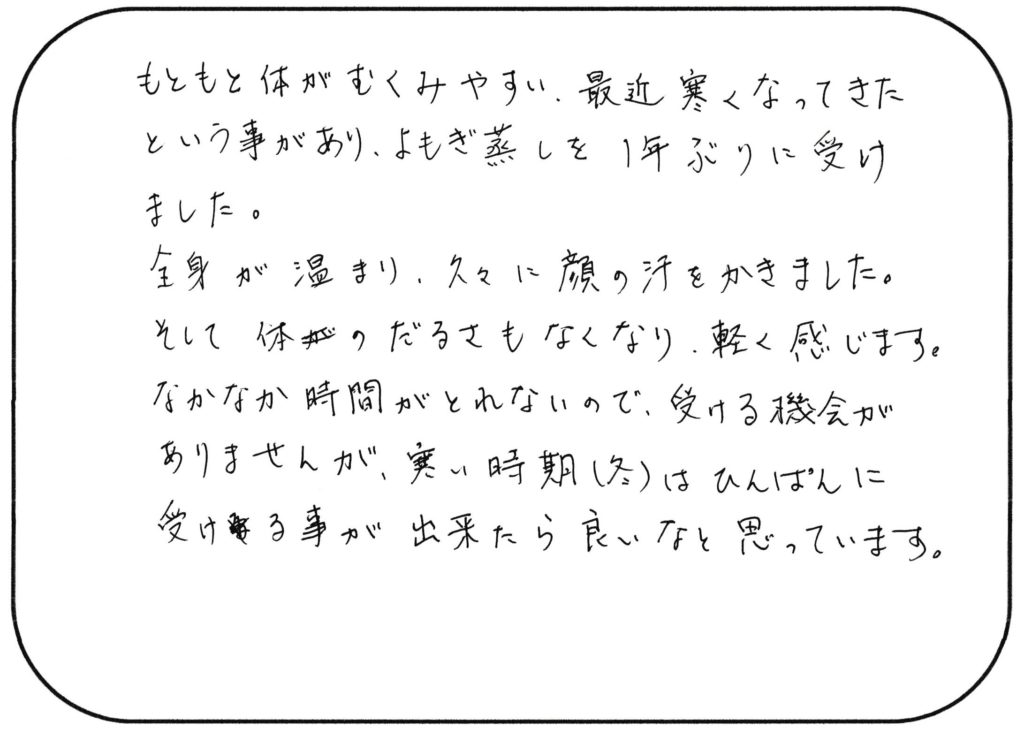 もともと体がむくみやすい、最近寒くなってきた
という事があり、よもぎ蒸しを1年ぶりに受け
ました。
全身が温まり、久々に顔の汗をかきました。
そして体のだるさもなくなり、軽く感じます。
なかなか時間がとれないので、受ける機会が
ありませんが、寒い時期(冬)はひんぱんに
受ける事が出来たら良いなと思っています。